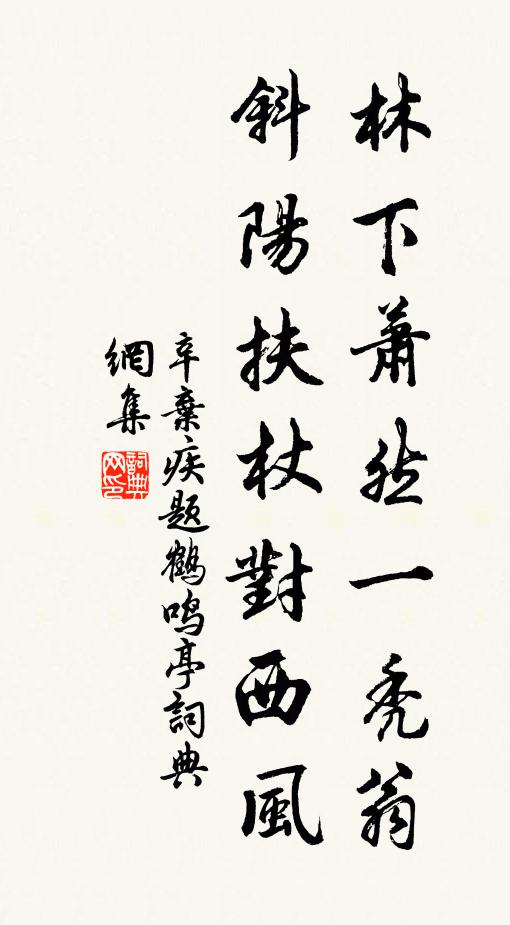 林下蕭然一禿翁
斜陽扶杖對西風
辛棄疾題鶴鳴亭詞典
網集
詞典網印